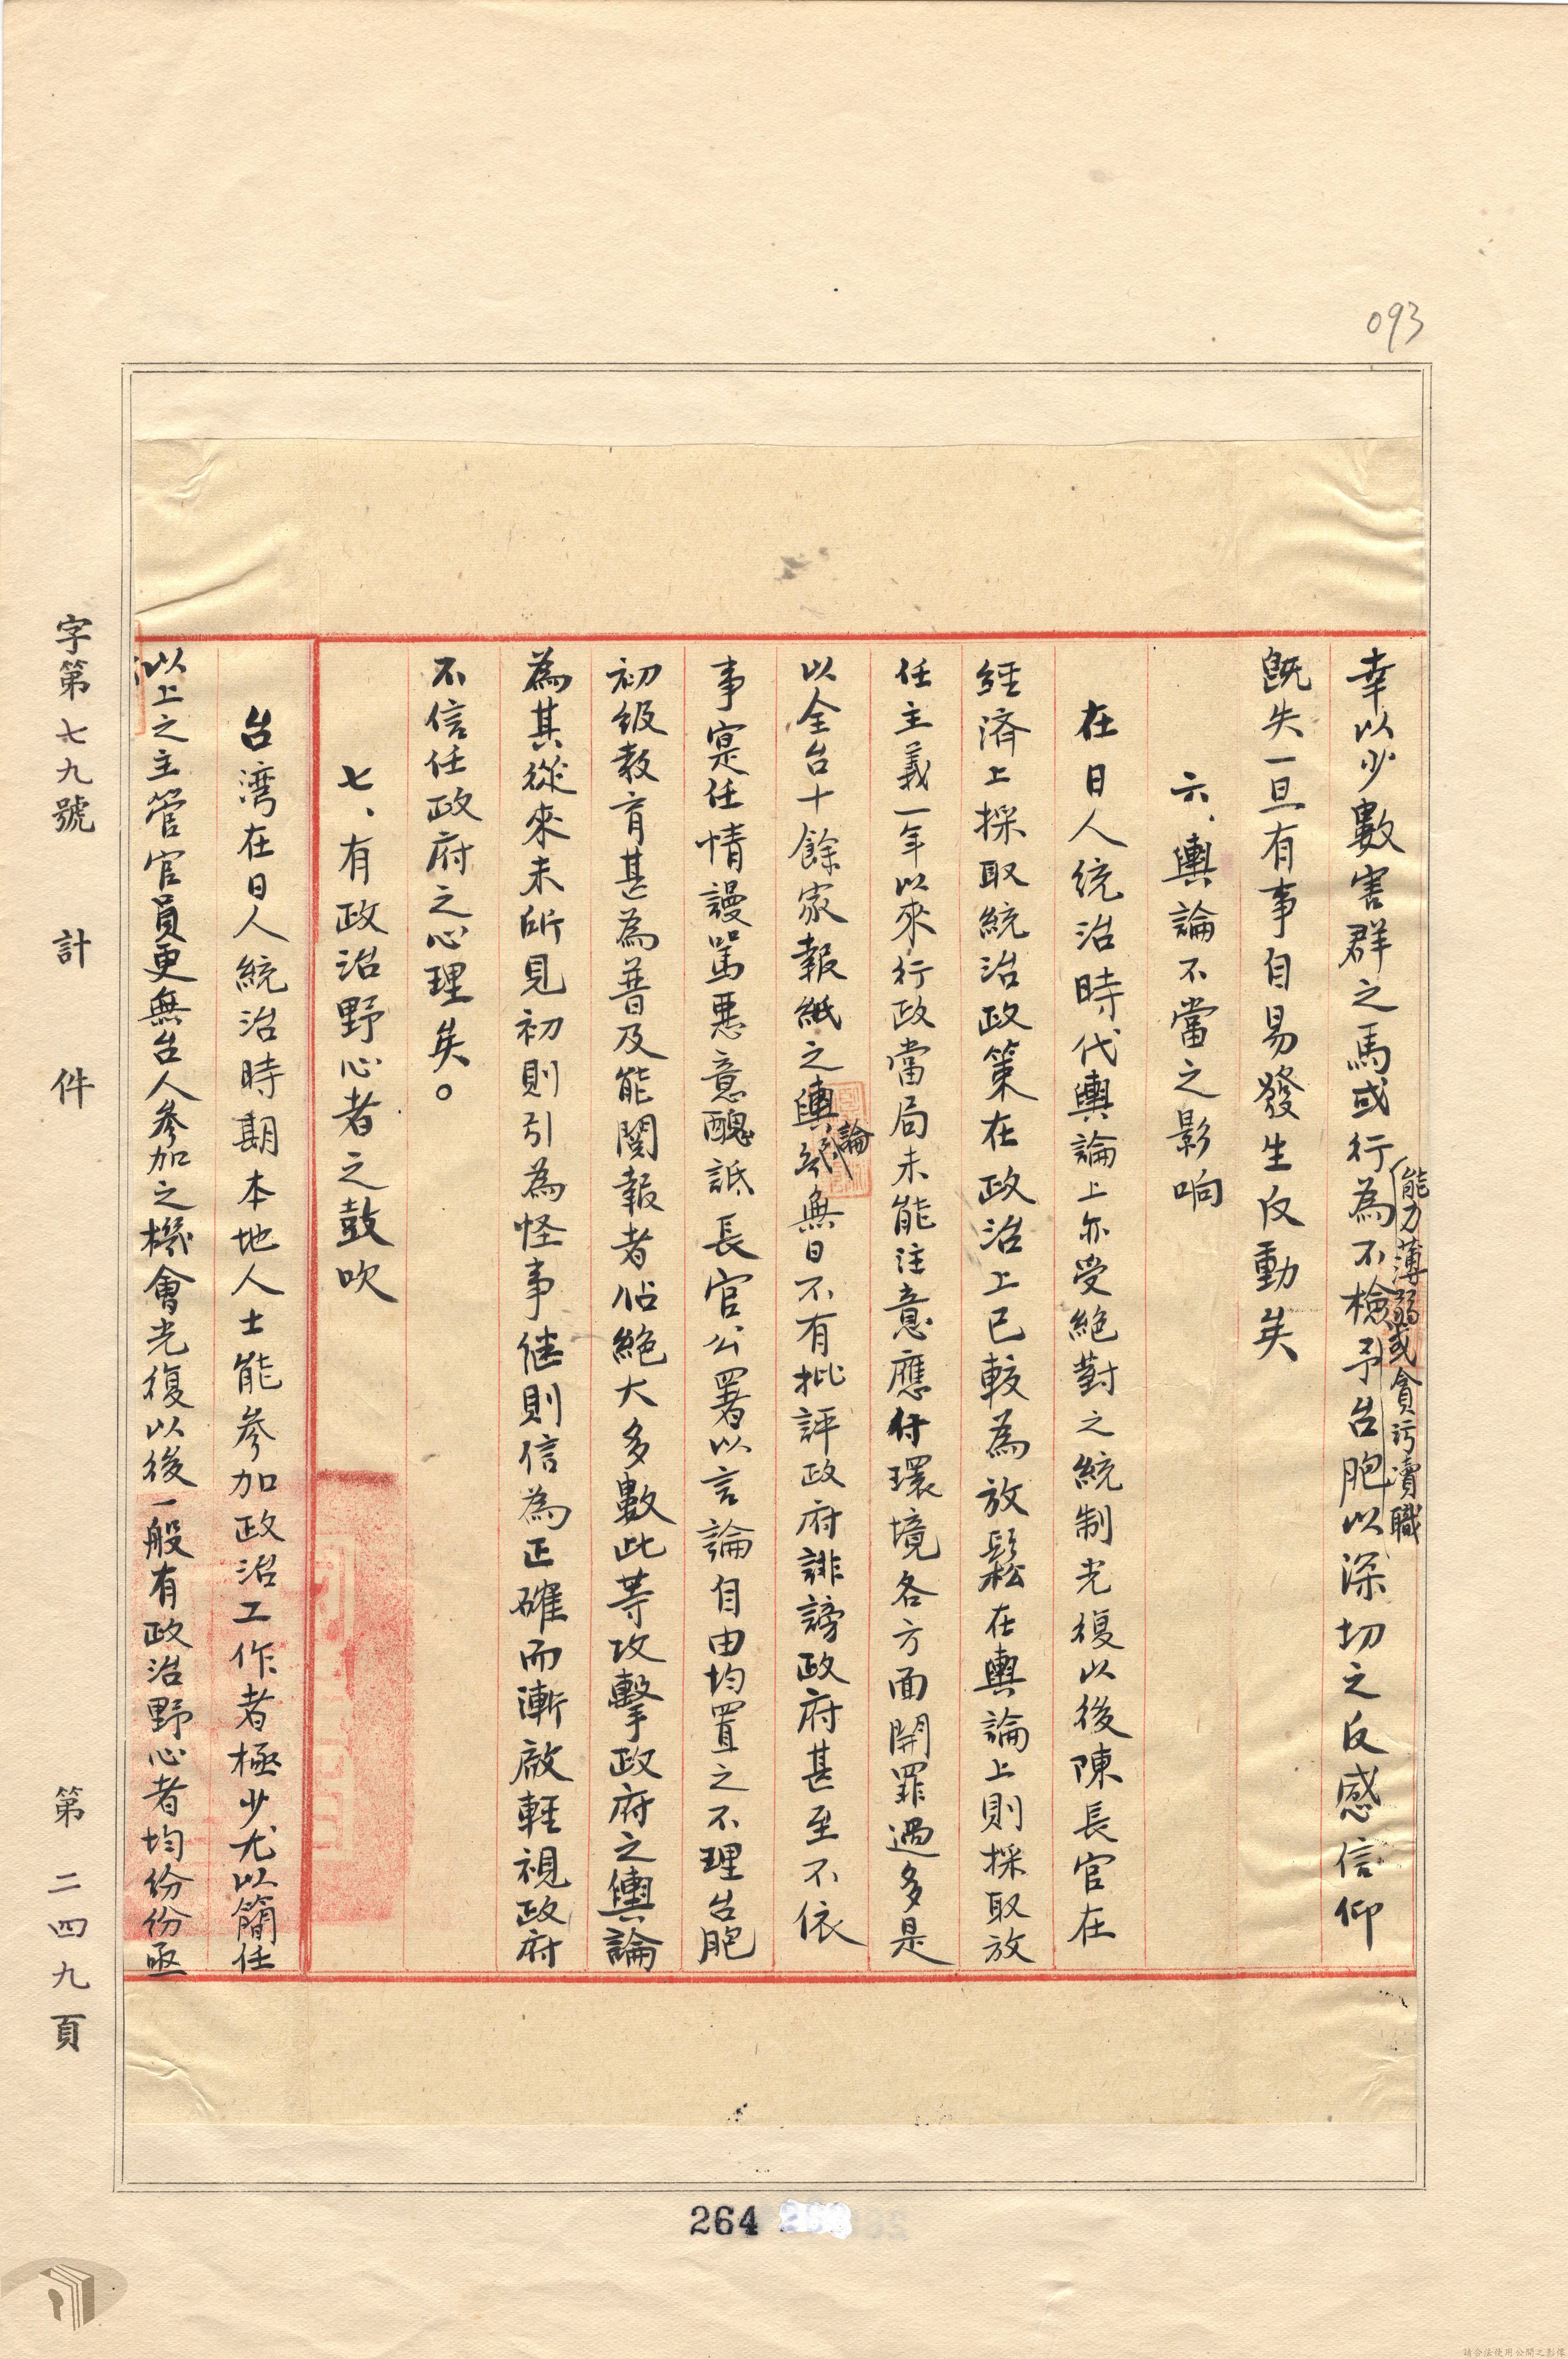 093
幸以少數害群之馬或行為不檢予台胞以深切之反感信仰
能力薄弱或貪污瀆職
既失一旦有事自易發生反動矣
六、輿論不當之影响
在日人統治時代輿論上亦受絕對之統制光復以後陳長官在
經済上採取統治政策在政治上已較為放鬆在輿論上則採取放
任主義一年以來行政當局未能注意應付環境各方面開罪過多是
以全台十餘家報紙之輿論無日不有批評政府誹謗政府甚至不依
事寔任情謾罵惡意醜詆長官公署以言論自由均置之不理台胞
初級教育甚為普及能閱報者佔絕大多數此等攻擊政府之輿論
為其從來未所見初則引為怪事継則信為正確而漸啟輕視政府
不信任政府之心理矣。
七、有政治野心者之鼓吹
台湾在日人統治時期本地人士能參加政治工作者極少尤以簡任
以上之主管官員更無台人參加之機會光復以後一般有政治野心者均份份亟
字第七九號 計 件 第二四九頁
264
請合法使用公開之影像